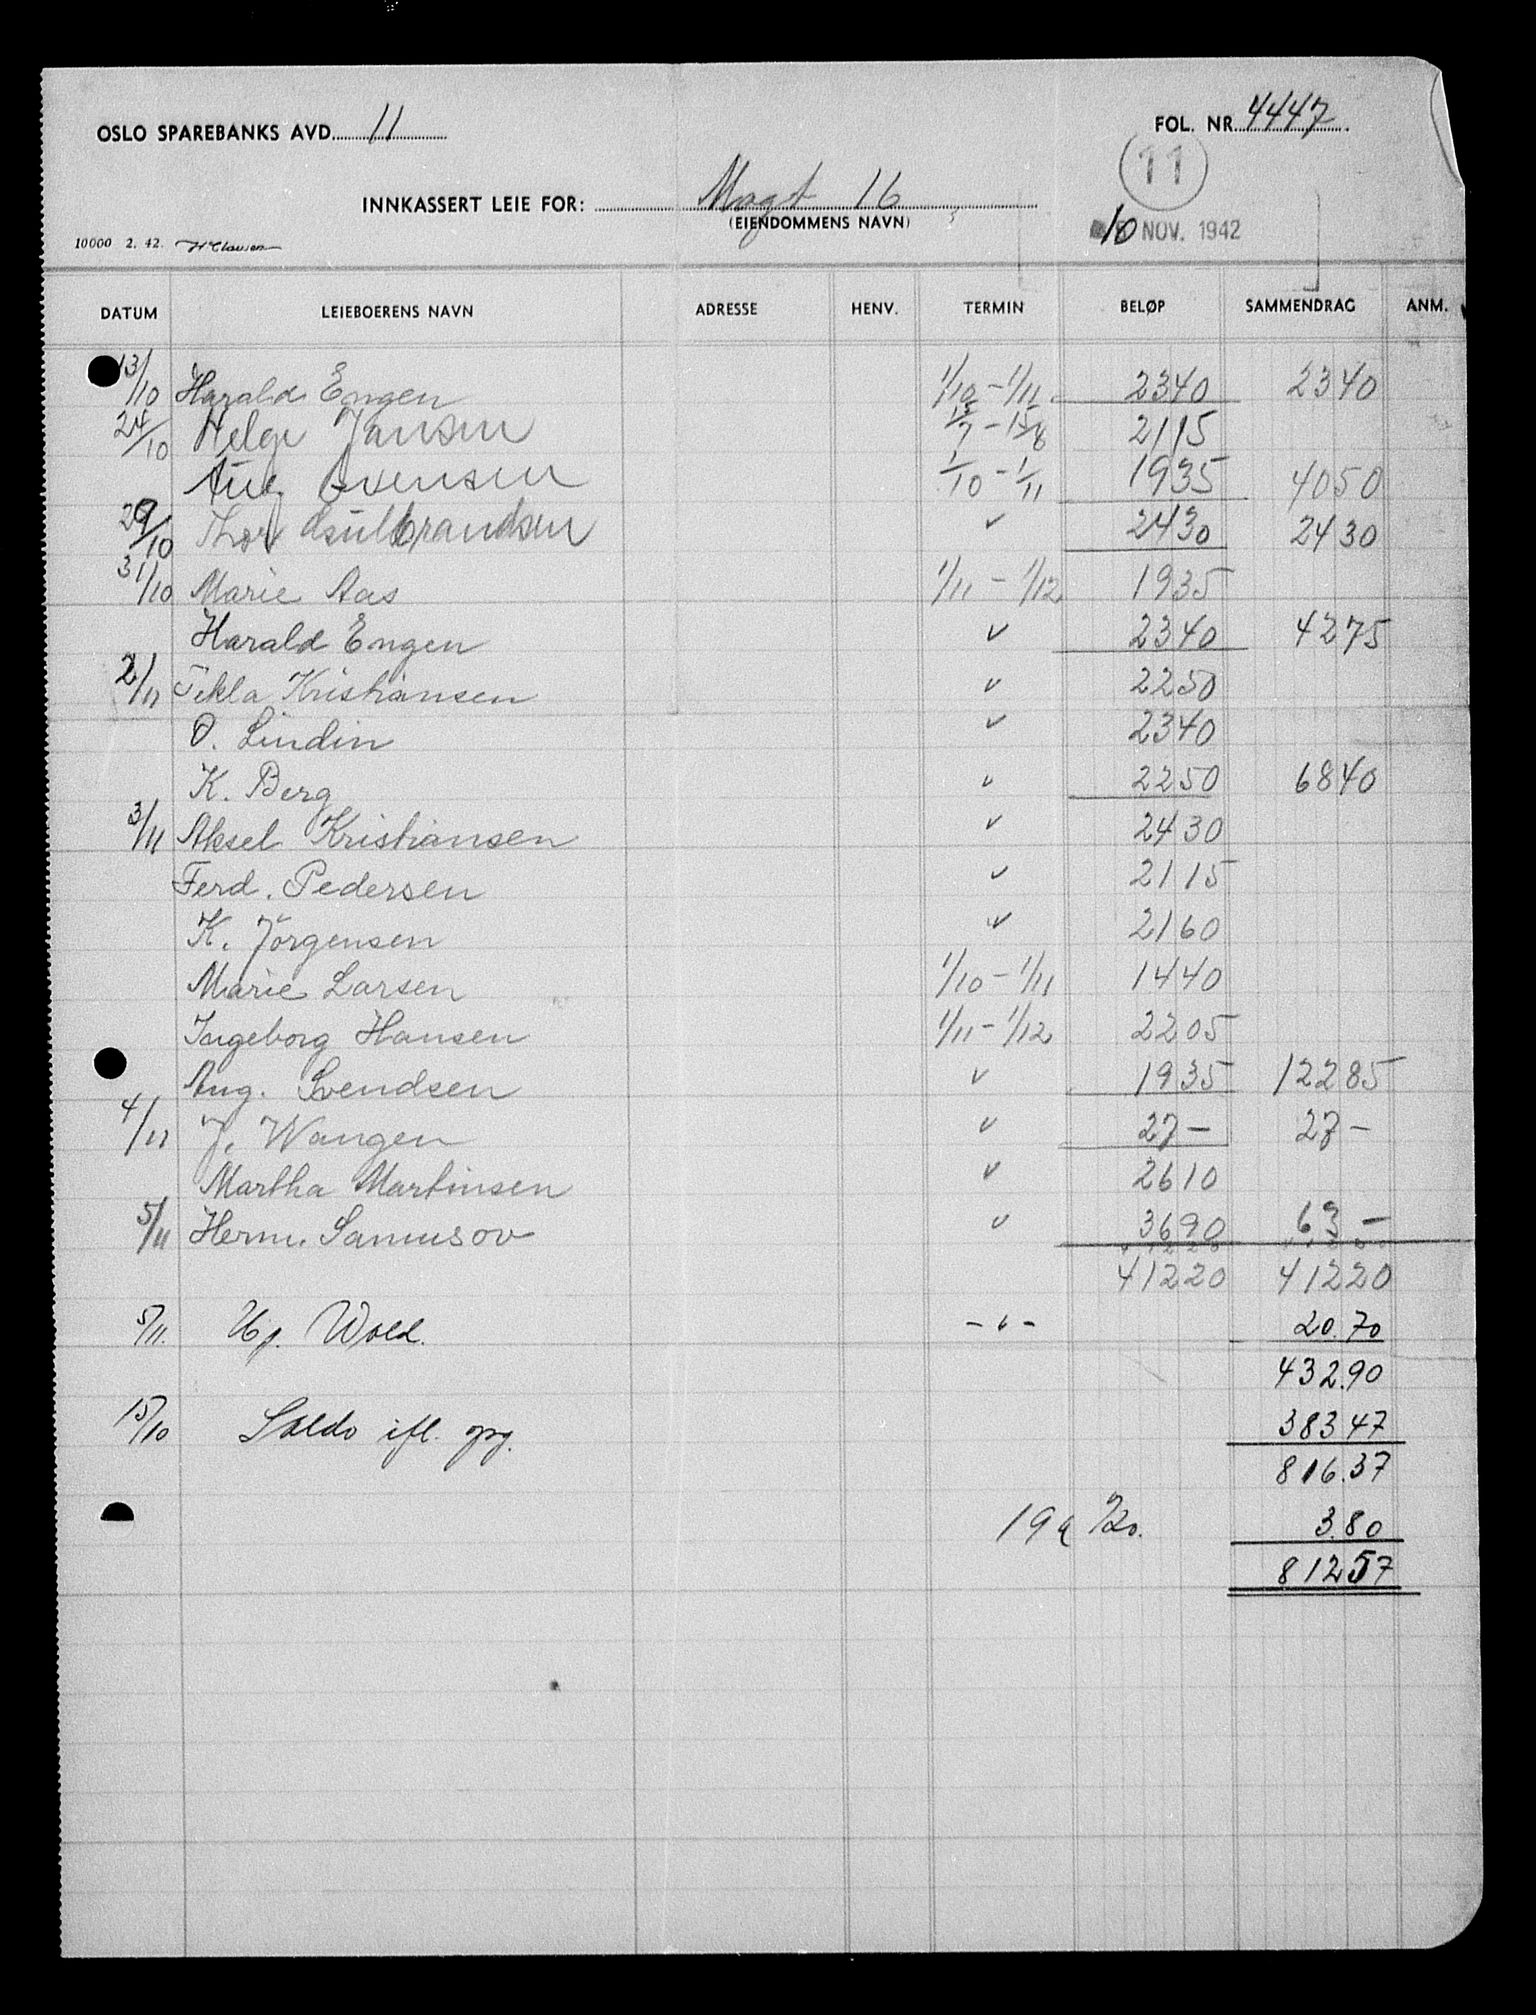 OSLO SPAREBANKS AVD. 11
FOL. NR. 4447
11
INNKASSERT LEIE FOR: Magt 16
(EIENDOMMENS NAVN)
10 NOV. 1942
10000 2. 42. H Clausen
DATUM LEIEBOERENS NAVN ADRESSE HENV. TERMIN BELØP SAMMENDRAG ANM.
13/10 Harald Engen 1/10 - 1/11 2340 2340
24/10 Helge Jansen 15/7 - 15/8 2115
Aug. Svensen 1/10 - 1/11 1935 4050
29/10 Thor Gulbrandsen " 2430 2430
31/10 Marie Aas 1/11 - 1/12 1935
Harald Engen " 2340 4275
2/11 Tekla Kristiansen " 2250
O. Lindin " 2340
K. Berg " 2250 6840
3/11 Aksel Kristiansen " 2430
Ferd. Pedersen " 2115
K. Jörgensen " 2160
Marie Larsen 1/10 - 1/11 1440
Ingeborg Hansen 1/11 - 1/12 2205
Aug. Svendsen " 1935 12285
4/11 J. Wangen " 27 - 27 -
Martha Martinsen " 2610
5/11 Herm. Samusov " 3690 63 -
41220 41220
5/11. Hj. Wold. - " - 20.70
432.90
15/10 Saldo ifl. opg. 383 47
816.37
19 a /20. 3.80
812 57